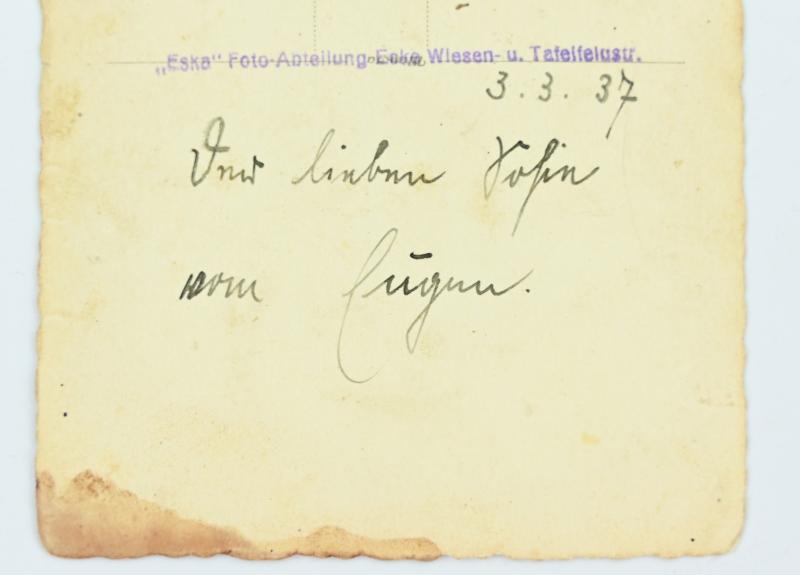 „Eska" Foto-Abteilung Ecke Wiesen- u. Tafelfeldstr.
3.3.37
Der lieben Sofie
vom Eugen.